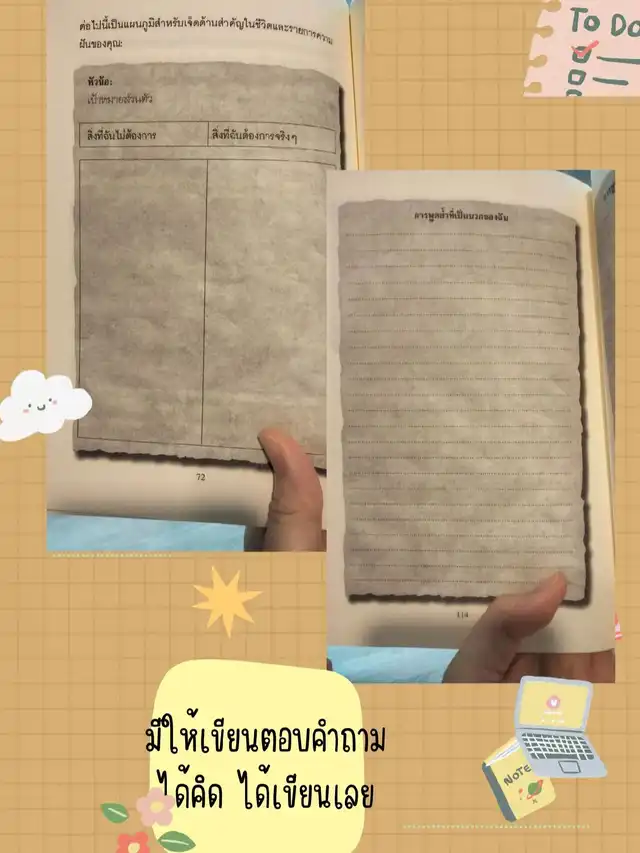 ต่อไปนี้เป็นแผนภูมิสำหรับเจ็ดด้านสำคัญในชีวิตและรายการความ
ฝันของคุณ:
หัวข้อ:
เป้าหมายส่วนตัว
สิ่งที่ฉันไม่ต้องการ
สิ่งที่ฉันต้องการจริงๆ
72
การพูดย้ำที่เป็นบวกของฉัน
114
To Do
มีให้เขียนตอบคำถาม
ได้คิด ได้เขียนเลย
NOTE